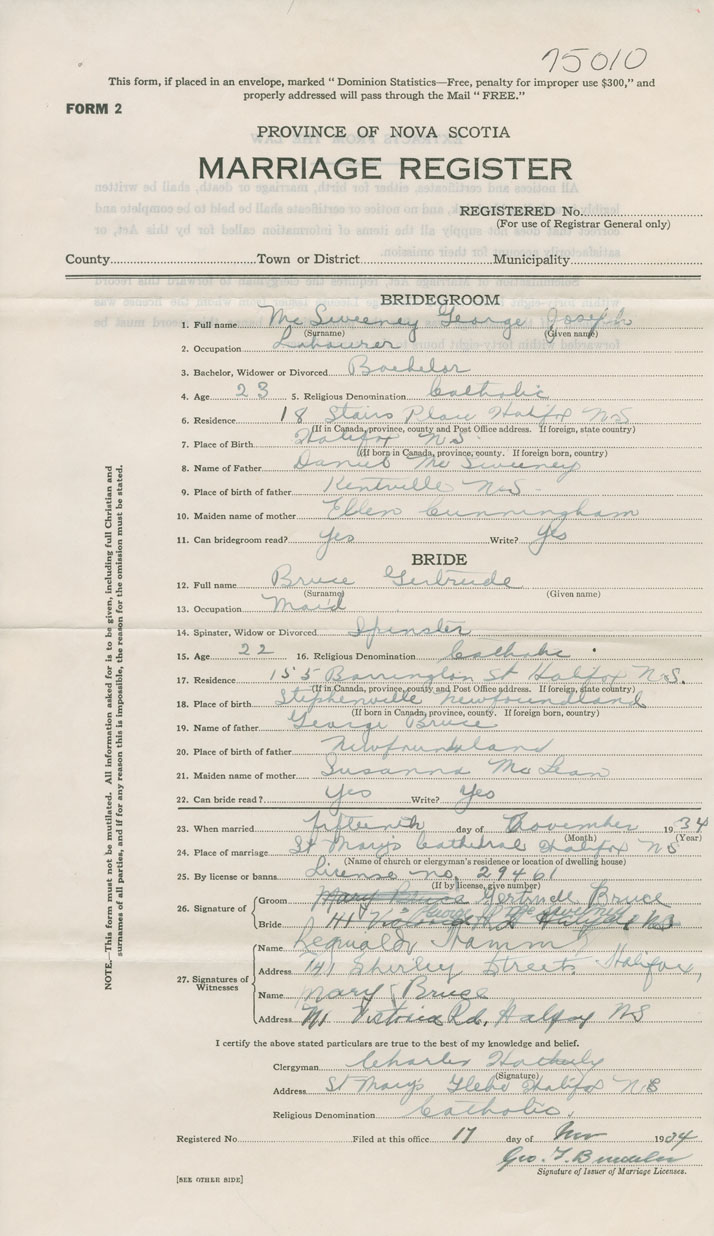 75010
This form, if placed in an envelope, marked “ Dominion Statistics—Free, penalty for improper use $300,” and
properly addressed will pass through the Mail “ FREE.”
FORM 2
PROVINCE OF NOVA SCOTIA
MARRIAGE REGISTER
REGISTERED No.
(For use of Registrar General only)
County Town or District Municipality
BRIDEGROOM
1. Full name Mc Sweeney George Joseph
(Surname) (Given name)
2. Occupation Labourer
3. Bachelor, Widower or Divorced Bachelor
4. Age 23 5. Religious Denomination Catholic
6. Residence 18 Stairs Place Halifax N.S
(If in Canada, province, county and Post Office address. If foreign, state country)
7. Place of Birth Halifax N.S.
(If born in Canada, province, county. If foreign born, country)
8. Name of Father Daniel Mc Sweeney
9. Place of birth of father Kentville N.S.
10. Maiden name of mother Ellen Cunningham
11. Can bridegroom read? Yes Write? Yes
BRIDE
12. Full name Bruce Gertrude
(Surname) (Given name)
13. Occupation Maid
14. Spinster, Widow or Divorced Spinster
15. Age 22 16. Religious Denomination Catholic
17. Residence 155 Barrington St Halifax N.S.
(If in Canada, province, county and Post Office address. If foreign, state country)
18. Place of birth Stephenville Newfoundland
(If born in Canada, province, county. If foreign born, country)
19. Name of father George Bruce
20. Place of birth of father Newfoundland
21. Maiden name of mother Susanna McLean
22. Can bride read? Yes Write? Yes
23. When married fifteenth day of November 1934
(Month) (Year)
24. Place of marriage St Mary's Cathedral Halifax N S
(Name of church or clergyman's residence or location of dwelling house)
25. By license or banns License no. 29461
(If by license, give number)
26. Signature of Groom Mary Bruce Gertrude Bruce
Bride 141 Victoria Rd Halifax N.S
27. Signatures of Witnesses
Name Reginald Hamm
Address 141 Shirley Street Halifax,
Name Mary Bruce
Address 141 Victoria Rd, Halifax NS
I certify the above stated particulars are true to the best of my knowledge and belief.
Clergyman Charles
(Signature)
Address St Mary's Glebe Halifax N S
Religious Denomination Catholic.
Registered No. Filed at this office 17 day of Nov 1934
Geo. F.
Signature of Issuer of Marriage Licenses.
[SEE OTHER SIDE]
NOTE.—This form must not be mutilated. All information asked for is to be given, including full Christian and
surnames of all parties, and if for any reason this is impossible, the reason for the omission must be stated.